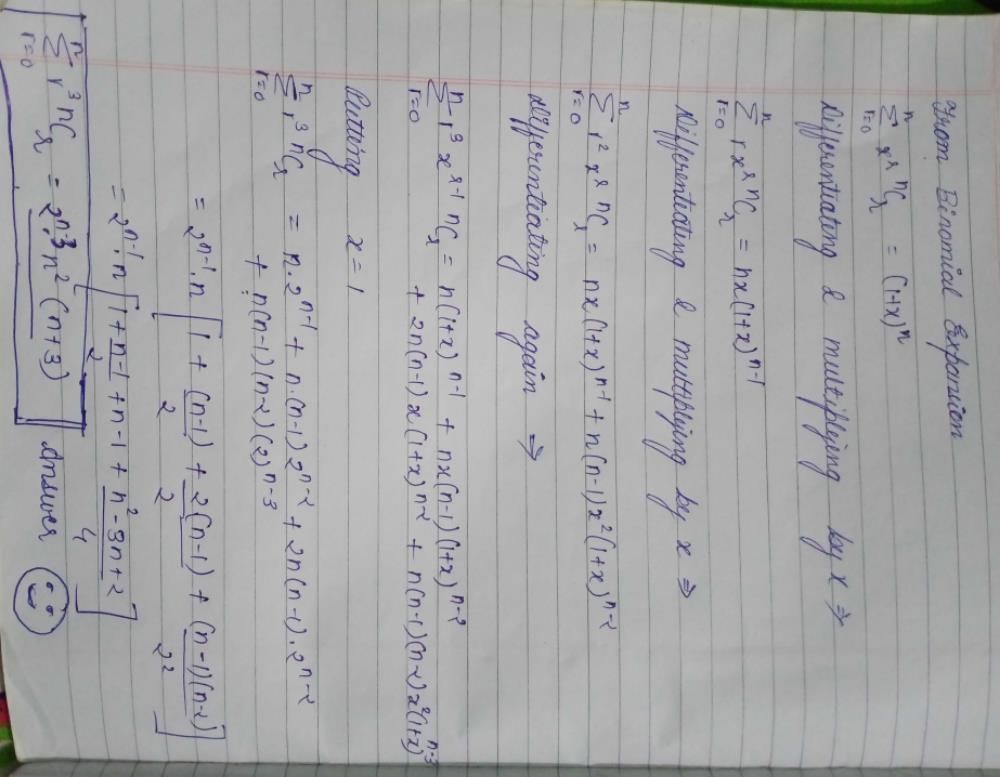 From Binomial Expansion
n∑r=0 x^r nCr = (1+x)^n
Differentiating & multiplying by x ⇒
n∑r=0 r x^r nCr = nx(1+x)^n-1
Differentiating & multiplying by x ⇒
n∑r=0 r² x^r nCr = nx(1+x)^n-1 + n(n-1)x²(1+x)^n-2
Differentiating again ⇒
n∑r=0 r³ x^r-1 nCr = n(1+x)^n-1 + nx(n-1)(1+x)^n-2
+ 2n(n-1)x(1+x)^n-2 + n(n-1)(n-2)x²(1+x)^n-3
Putting x=1
n∑r=0 r³ nCr = n.2^n-1 + n.(n-1)2^n-2 + 2n(n-1).2^n-2
+ n(n-1)(n-2)(2)^n-3
= 2^n-1.n[1 + (n-1)/2 + 2(n-1)/2 + (n-1)(n-2)/2²]
= 2^n-1.n[1 + n-1/2 + n-1 + n²-3n+2/4]
n∑r=0 r³ nCr = 2^n-3.n²(n+3) Answer